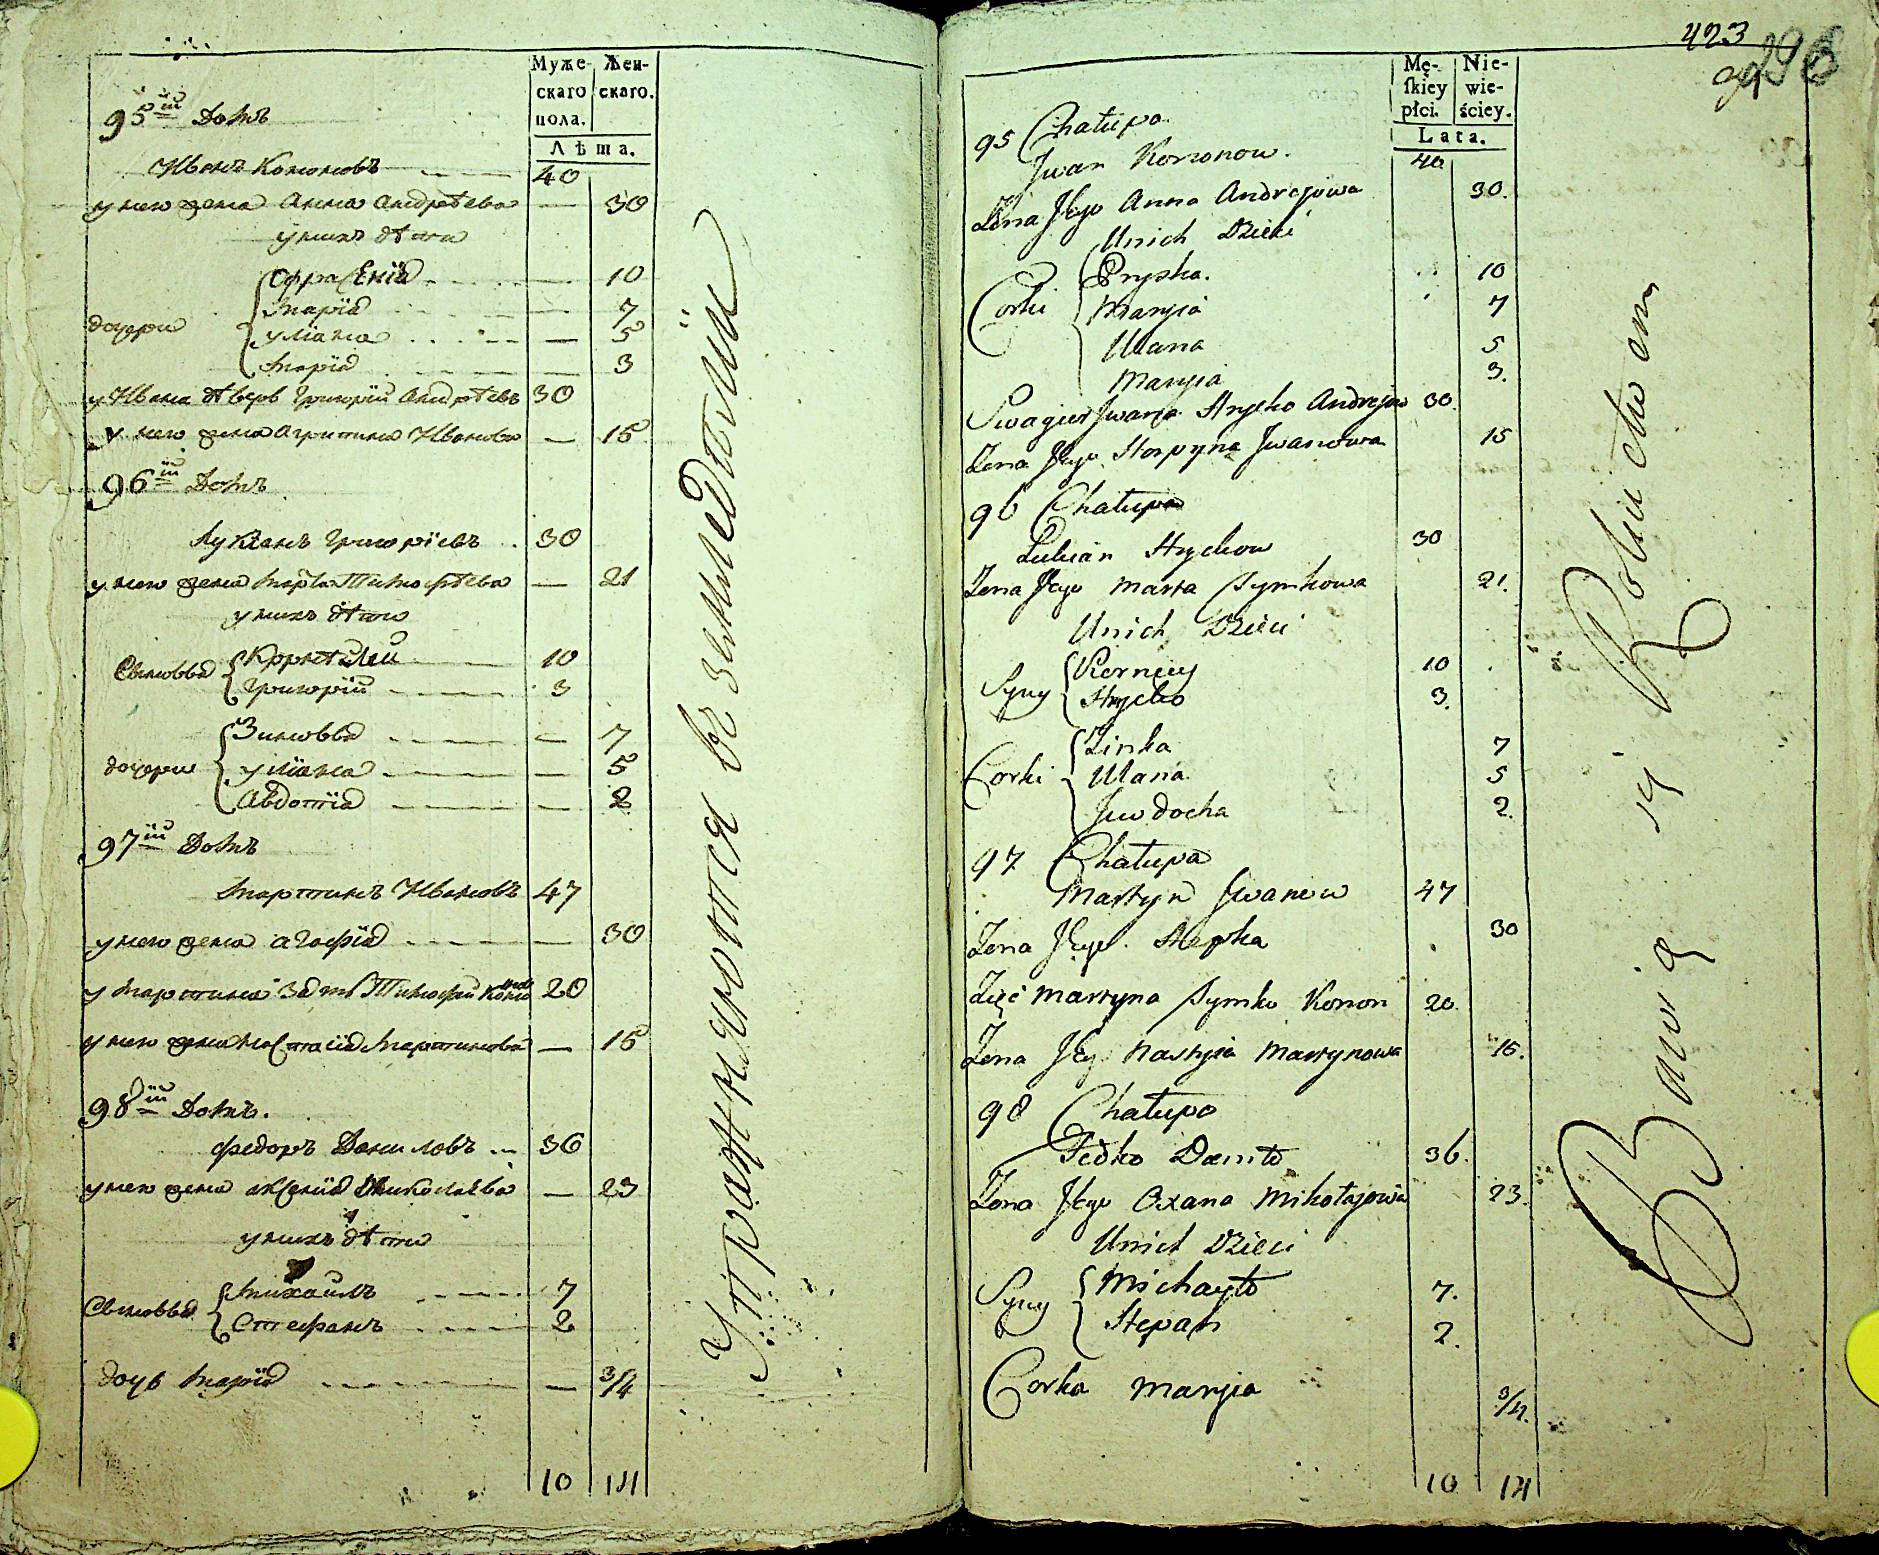 Муже-
скаго
пола.
Жен-
скаго.
Лѣта.
95ій Домъ
Иванъ Кононовъ 40
у него жена Анна Андрѣева — 30
у нихъ дѣти
дочери
Єфрасенія — 10
Марія — 7
Уліана — 5
Марія — 3
у Ивана дѣверь Григорій Андрѣевъ 30
у него жена Агрипина Иванова — 15
96ій Домъ
Лукіанъ Григоріевъ 30
у него жена Марта Тимофѣева — 21
у нихъ дѣти
Сыновья
Корнѣлей 10
Григорій 3
дочери
Зиновья — 7
Уліана — 5
Авдотія — 2
97ій Домъ
Мартинъ Ивановъ 47
у него жена Агафія — 30
у Мартина Зять Тимофей 20
у него жена Настасія Мартинова — 15
98ій Домъ.
Федоръ Даниловъ 36
у него жена Аксенія Николаева — 23
у нихъ дѣти
Сыновья
Михаилъ 7
Стефанъ 2
дочь Марія — 3/4
10 14
Упражняются въ земледѣліи
423
296
Mę-
ſkiey
płci.
Nie-
wie-
ściey.
Lata.
95 Chałupa
Jwan Kononow. 40
Żona Jego Anna Andrejowa 30.
Unich Dzieci
Corki
Pryska. 10
Maryia 7
Ulana 5
Maryia 3.
Swagier Jwana Hrycko Andrejow 30.
Żona Jego Horpyna Jwanowa 15
96 Chałupa
Lukian Hryckow 30
Żona Jego Marta Symkowa 21.
Unich Dzieci
Syny
Kierniey 10
Hrycko 3.
Corki
Zinka 7
Ulana 5
Juwdocha 2.
97 Chałupa
Martyn Jwanow 47
Żona Jego. Hapka 30
Zięć Martyna Symko Konon 20.
Żona Jego Nastyia Martynowa 15.
98 Chałupa
Fedko Daniło 36.
Żona Jego Oxana Mikołajowa 23.
Unich Dzieci
Syny
Michayło 7.
Stepan 2.
Corka Maryia 3/4.
10 14
Bawią się Rolnictwem